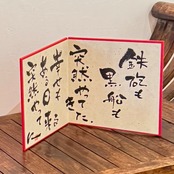 鉄砲も
黒船も
突然やってきた、
幸せも
ある日
突然やって